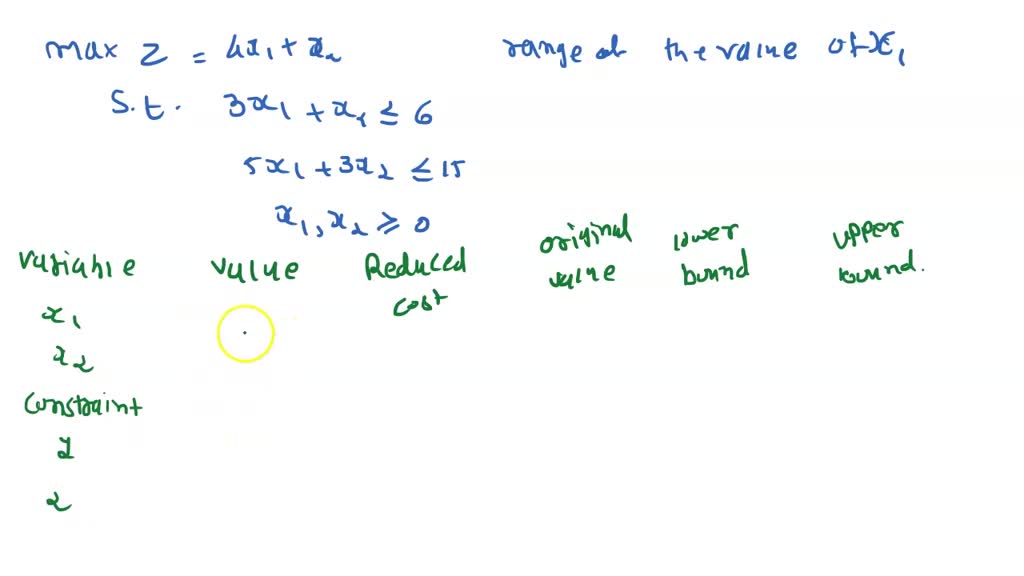 max Z = 4x1 + x2
range of the value of x1
S.t. 3x1 + x2 ≤ 6
5x1 + 3x2 ≤ 15
x1, x2 ≥ 0
variable value Reduced cost original value lower bound upper bound.
x1
x2
constraint
1
2